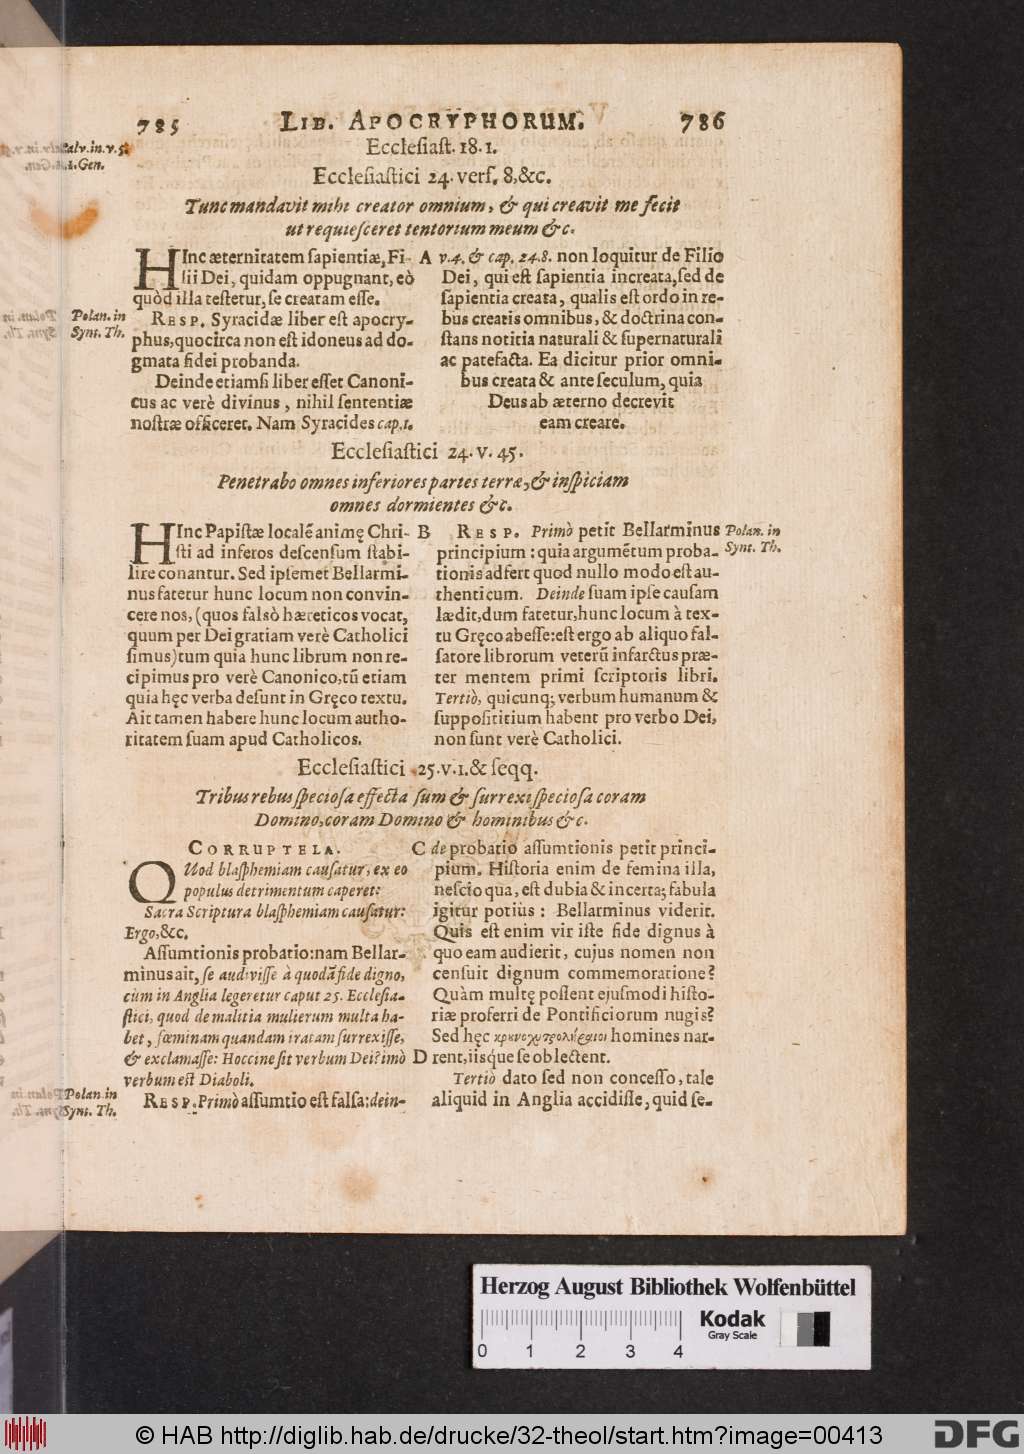 785 LIB. APOCRYPHORUM. 786
Ecclesiast. 18. 1.
Ecclesiastici 24. vers. 8, &c.
Tunc mandavit mihi creator omnium, & qui creavit me fecit
ut requiesceret tentorium meum &c.
HInc æternitatem sapientiæ, Fi-
lii Dei, quidam oppugnant, eò
quòd illa testetur, se creatam esse.
Polan. in
Synt. Th.
RESP. Syracidæ liber est apocry-
phus, quocirca non est idoneus ad do-
gmata fidei probanda.
Deinde etiamsi liber esset Canoni-
cus ac verè divinus, nihil sententiæ
nostræ officeret. Nam Syracides cap. 1.
A v. 4. & cap. 24. 8. non loquitur de Filio
Dei, qui est sapientia increata, sed de
sapientia creata, qualis est ordo in re-
bus creatis omnibus, & doctrina con-
stans notitia naturali & supernaturali
ac patefacta. Ea dicitur prior omni-
bus creata & ante seculum, quia
Deus ab æterno decrevit
eam creare.
Ecclesiastici 24. v. 45.
Penetrabo omnes inferiores partes terræ, & inspiciam
omnes dormientes &c.
HInc Papistæ localẽ animę Chri-
sti ad inferos descensum stabi-
lire conantur. Sed ipsemet Bellarmi-
nus fatetur hunc locum non convin-
cere nos, (quos falsò hæreticos vocat,
quum per Dei gratiam verè Catholici
simus) tum quia hunc librum non re-
cipimus pro verè Canonico, tũ etiam
quia hęc verba desunt in Gręco textu.
Ait tamen habere hunc locum autho-
ritatem suam apud Catholicos.
B RESP. Primò petit Bellarminus
principium: quia argumẽtum proba-
tionis adfert quod nullo modo est au-
thenticum. Deinde suam ipse causam
lædit, dum fatetur, hunc locum à tex-
tu Gręco abesse: est ergo ab aliquo fal-
satore librorum veterũ infarctus præ-
ter mentem primi scriptoris libri.
Tertiò, quicunq; verbum humanum &
supposititium habent pro verbo Dei,
non sunt verè Catholici.
Polan. in
Synt. Th.
Ecclesiastici 25. v. 1. & seqq.
Tribus rebus speciosa effecta sum & surrexi speciosa coram
Domino, coram Domino & hominibus &c.
CORRUPTELA.
QUod blasphemiam causatur, ex eo
populus detrimentum caperet:
Sacra Scriptura blasphemiam causatur:
Ergo, &c.
Assumtionis probatio: nam Bellar-
minus ait, se audivisse à quodã fide digno,
cùm in Anglia legeretur caput 25. Ecclesia-
stici, quod de malitia mulierum multa ha-
bet, fœminam quandam iratam surrexisse,
& exclamasse: Hoccine sit verbum Dei? imò
verbum est Diaboli.
Polan. in
Synt. Th.
RESP. Primò assumtio est falsa: dein-
C de probatio assumtionis petit princi-
pium. Historia enim de femina illa,
nescio qua, est dubia & incerta; fabula
igitur potiùs: Bellarminus viderit.
Quis est enim vir iste fide dignus à
quo eam audierit, cujus nomen non
censuit dignum commemoratione?
Quàm multę possent ejusmodi histo-
riæ proferri de Pontificiorum nugis?
Sed hęc homines nar-
D rent, iisque se oblectent.
Tertiò dato sed non concesso, tale
aliquid in Anglia accidisse, quid se-
Herzog August Bibliothek Wolfenbüttel
0 1 2 3 4
Kodak
Gray Scale
© HAB http://diglib.hab.de/drucke/32-theol/start.htm?image=00413
DFG